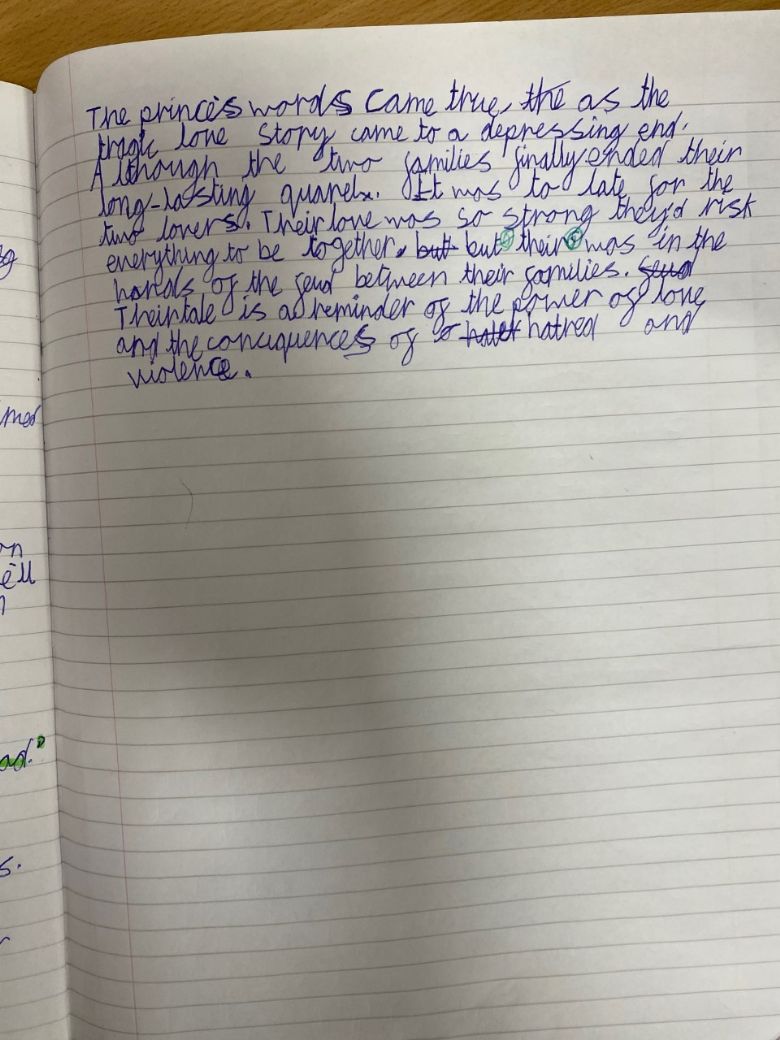 The prince's words came true, the as the
tragic love story came to a depressing end.
Although the two families finally ended their
long-lasting quarel. It was to late for the
two lovers. Their love was so strong they'd risk
everything to be together. but but their was in the
hands of the feud between their families. feud
Their tale is a reminder of the power of love
and the consiquences of hatred and
violence.
ad."
s.